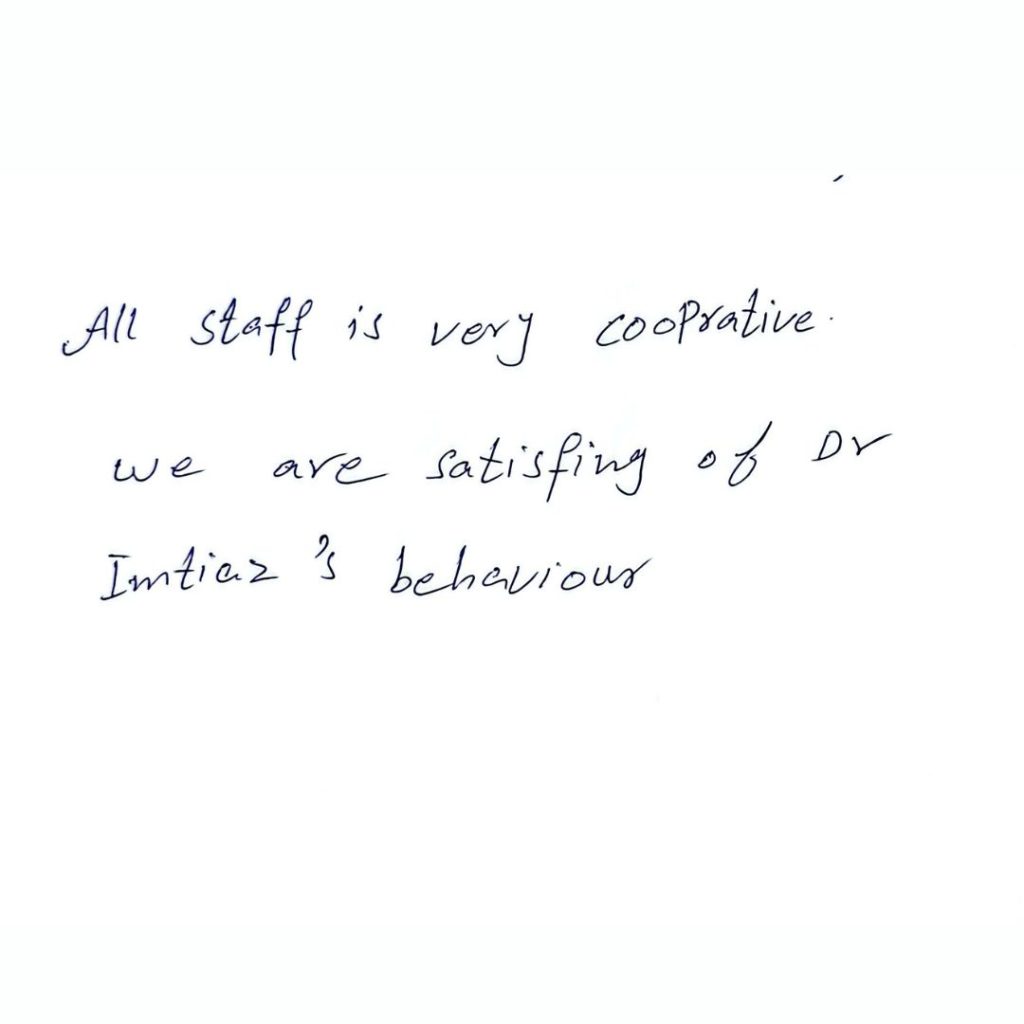 All staff is very cooprative.
we are satisfing of Dr
Imtiaz 's behaviour